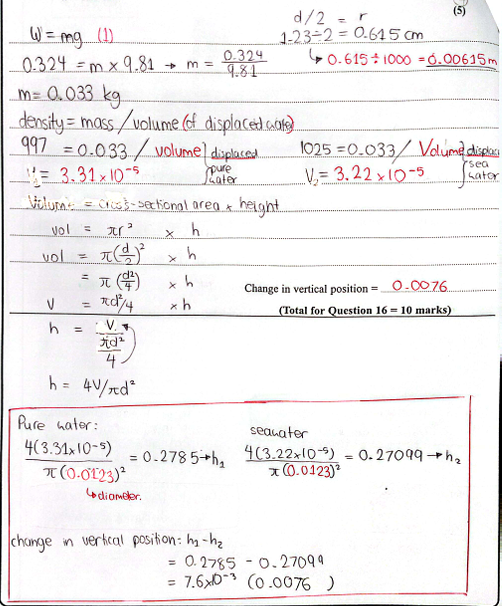 (5)
d/2 = r
W = mg (1)
1.23÷2 = 0.615 cm
0.324 = m × 9.81 → m = 0.324 / 9.81
↳ 0.615 ÷ 1000 = 0.00615m
m = 0.033 kg
density = mass / volume (of displaced water)
997 = 0.033 / volume } displaced pure water
1025 = 0.033 / Volume } displaced sea water
V₂ = 3.31 × 10⁻⁵
V₂ = 3.22 × 10⁻⁵
Volume = cross-sectional area × height
vol = πr² × h
vol = π(d/2)² × h
= π (d²/4) × h
Change in vertical position = 0.0076
V = πd²/4 × h
(Total for Question 16 = 10 marks)
h = V / (πd²/4)
h = 4V/πd²
Pure water:
seawater
4(3.31×10⁻⁵) / π(0.0123)² = 0.2785 → h₁
4(3.22×10⁻⁵) / π(0.0123)² = 0.27099 → h₂
↳ diameter.
change in vertical position: h₁-h₂
= 0.2785 - 0.27099
= 7.6×10⁻³ (0.0076 )